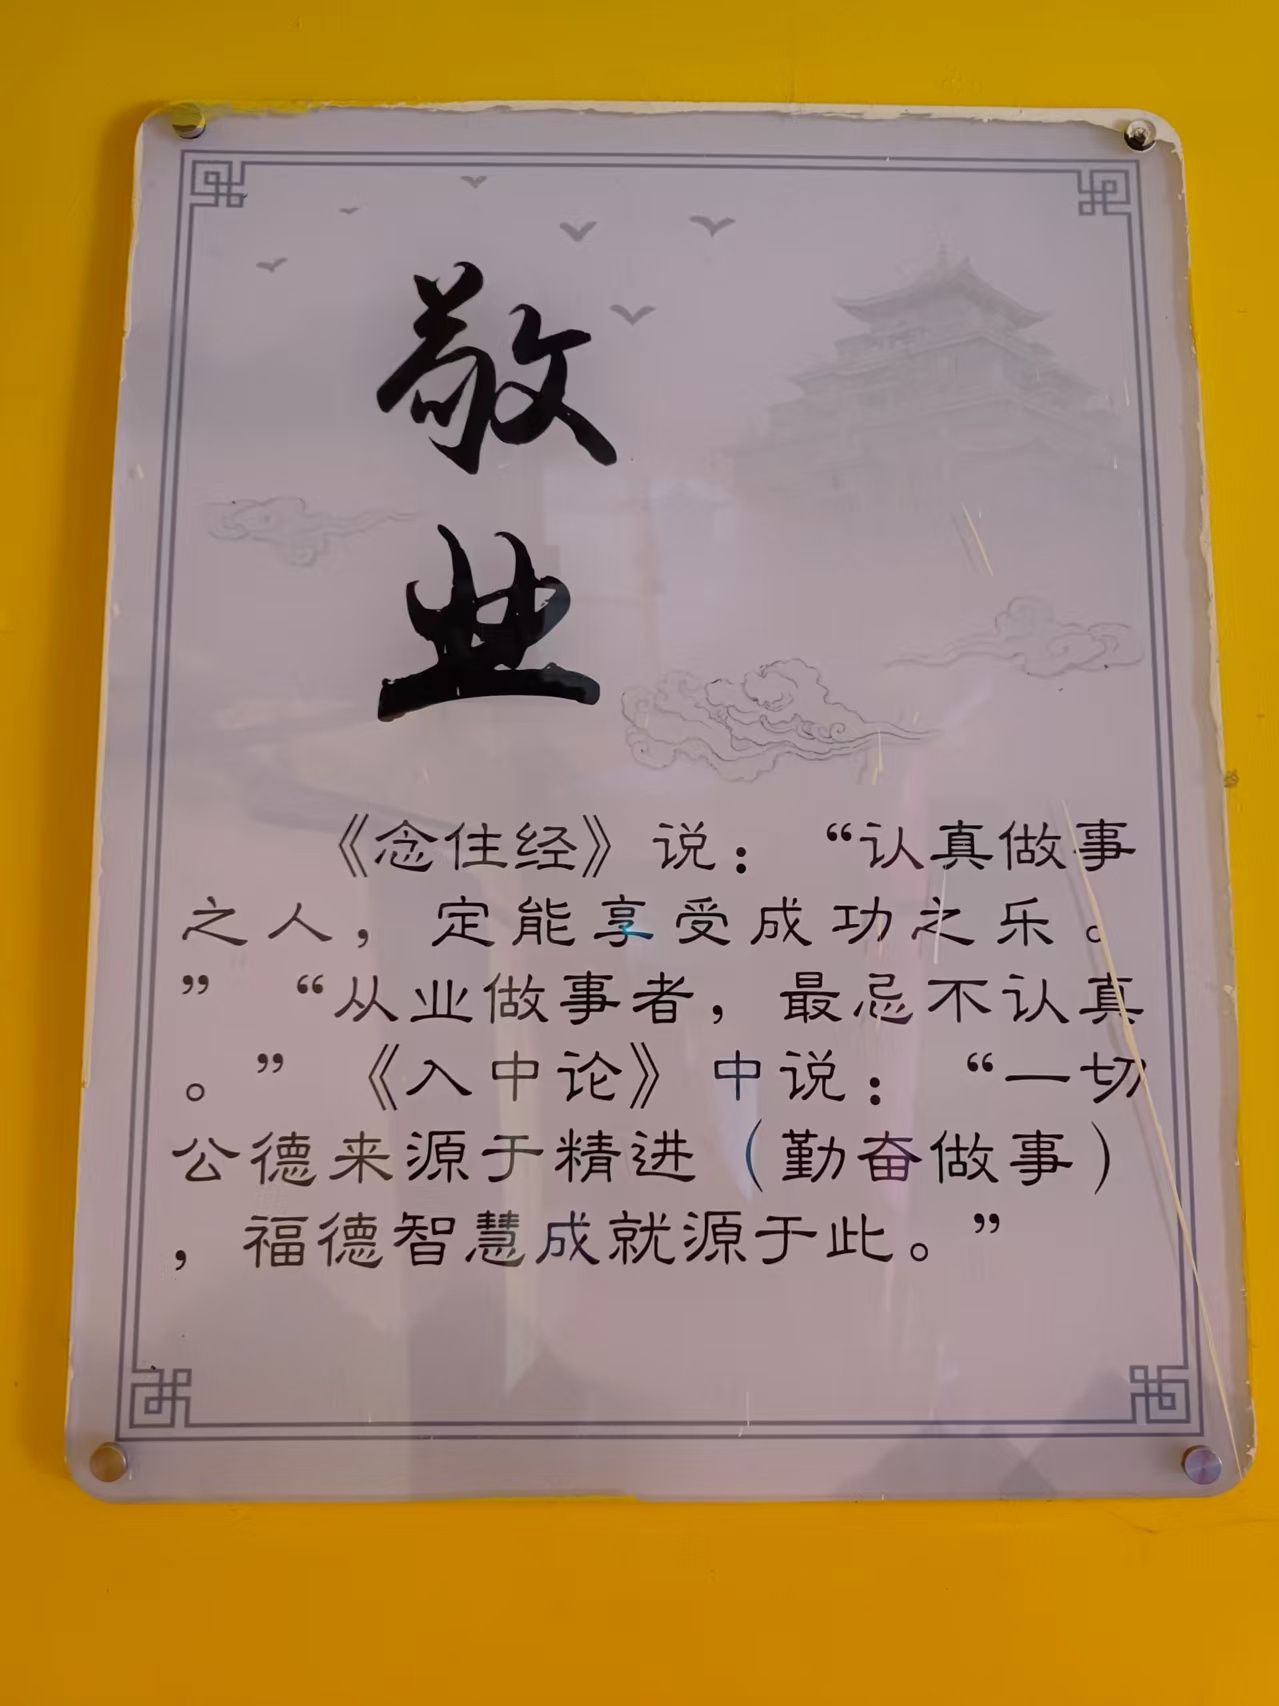 敬
业
《念住经》说：“认真做事
之人，定能享受成功之乐。
”“从业做事者，最忌不认真
。”《入中论》中说：“一切
公德来源于精进（勤奋做事）
，福德智慧成就源于此。”